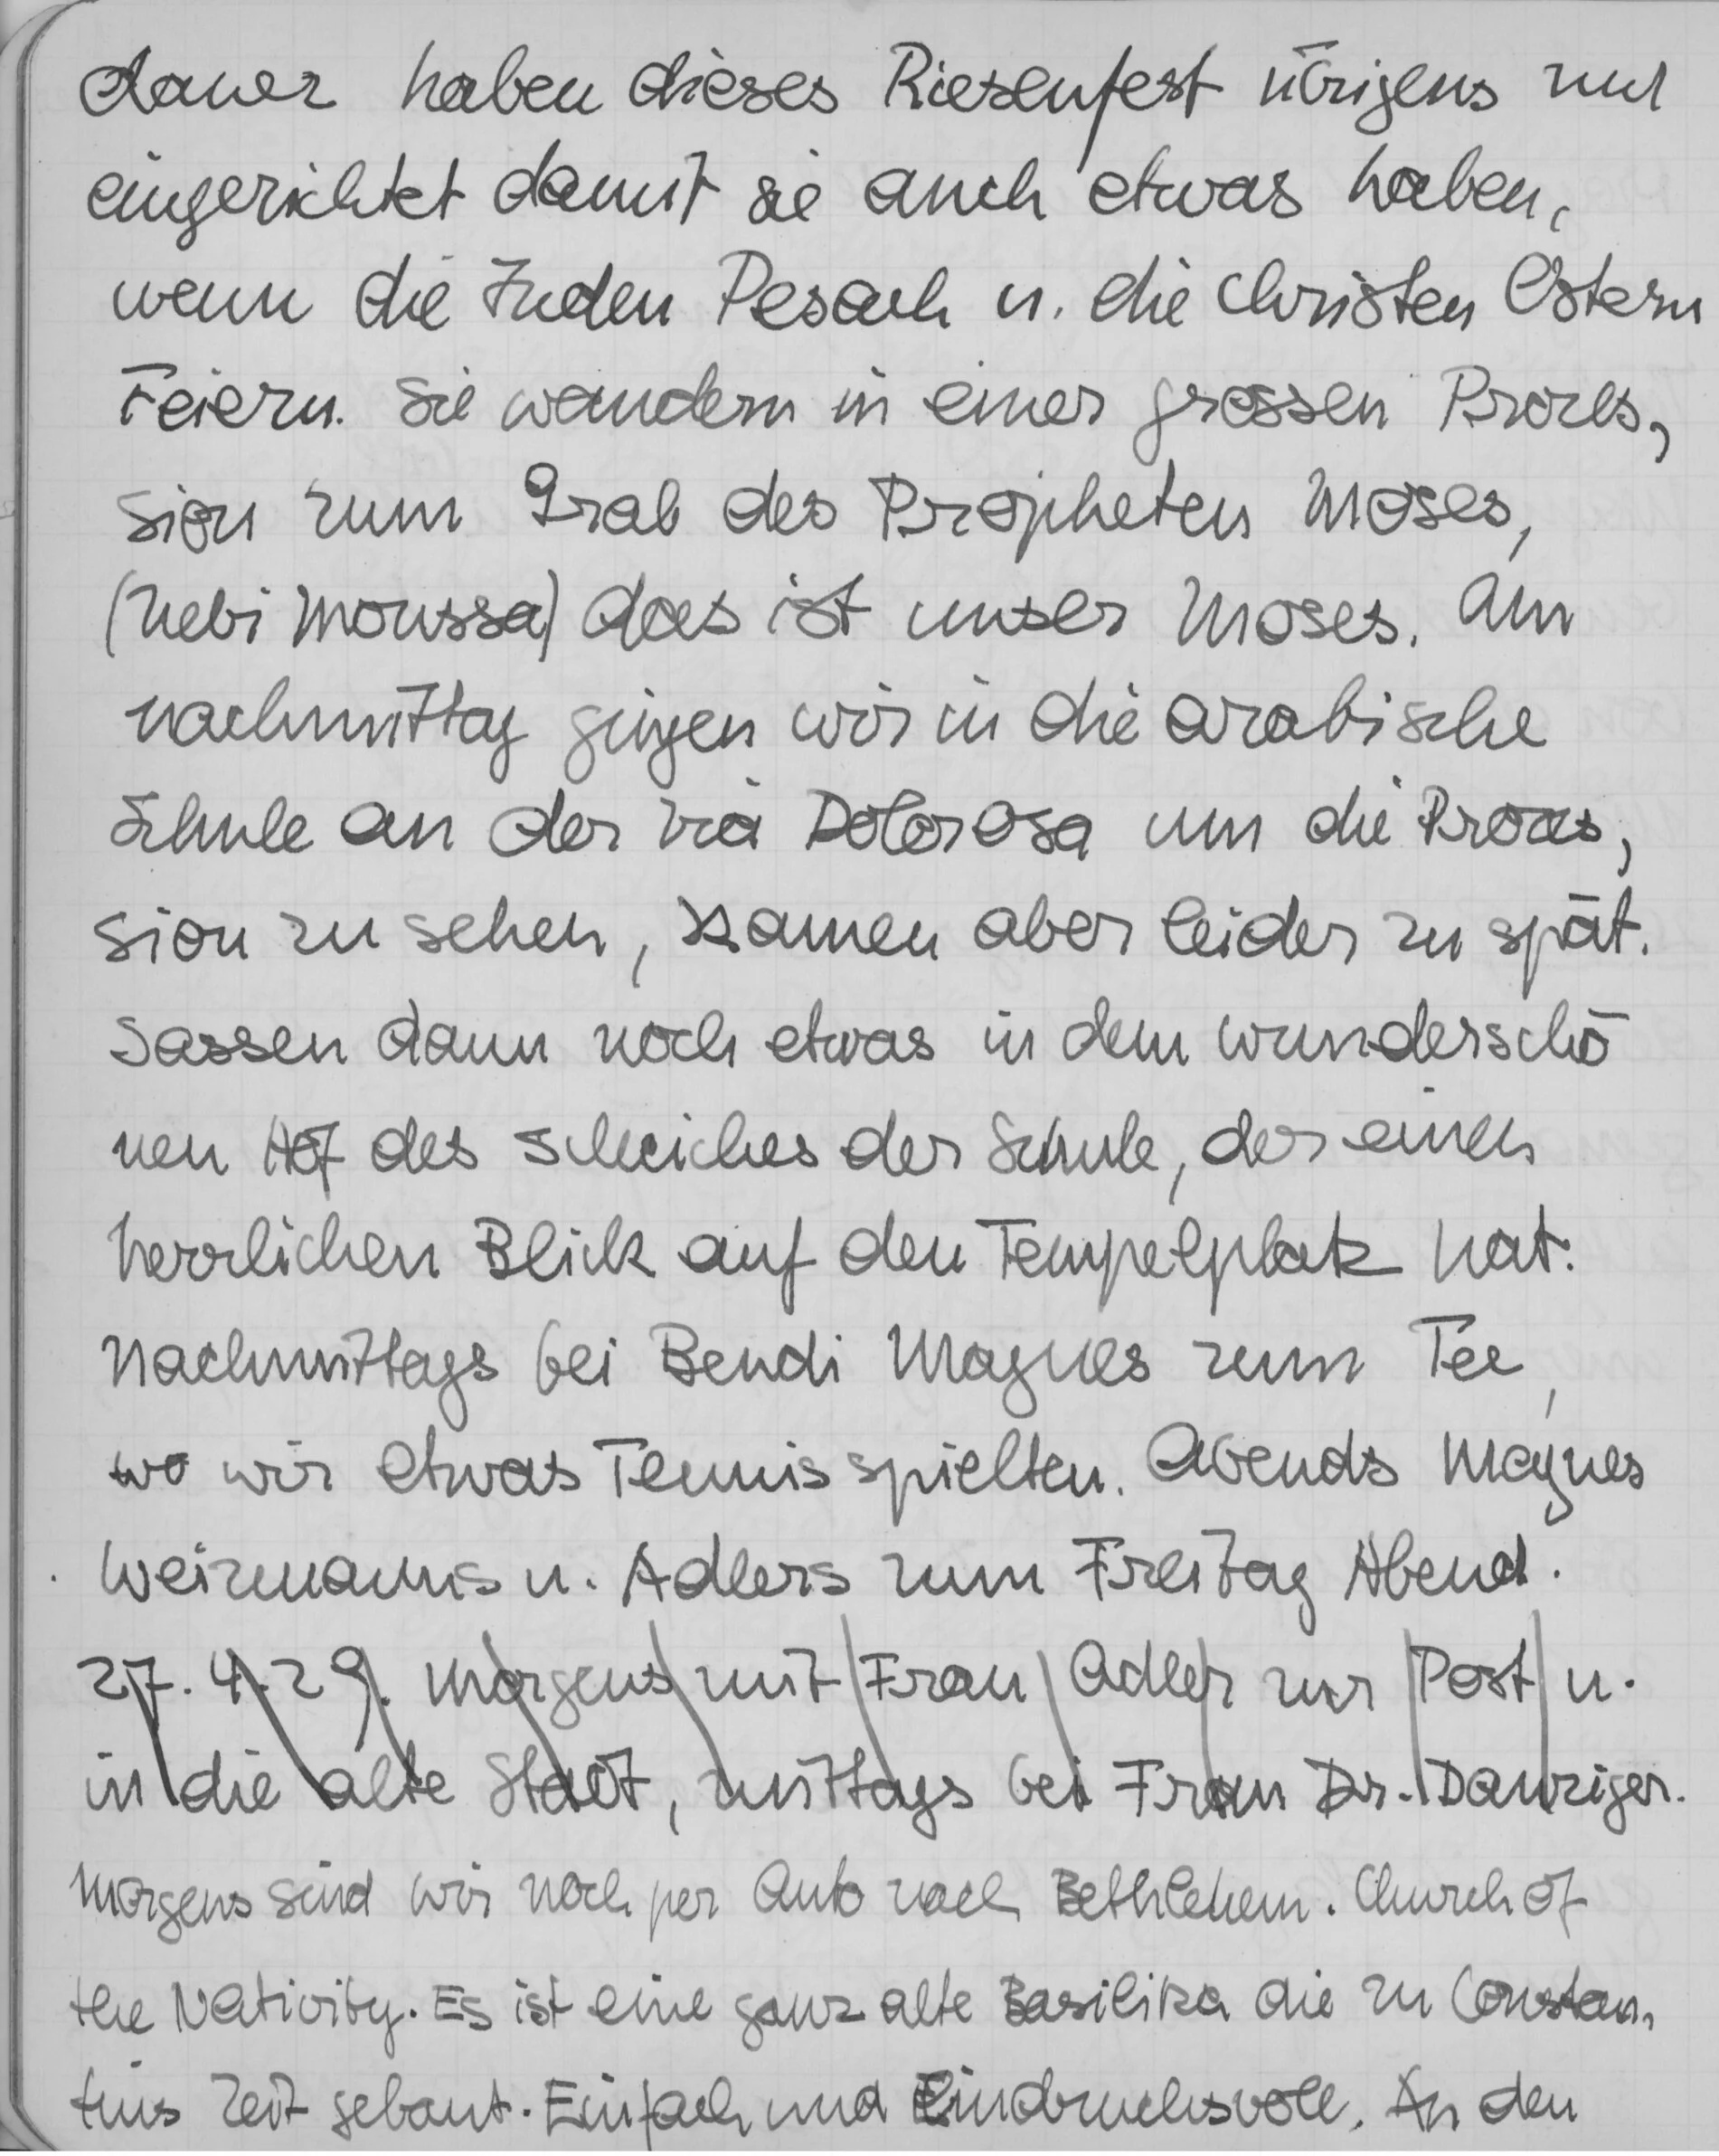 daner haben dieses Riesenfest übrigens nur
eingerichtet damit sie auch etwas haben,
wenn die Juden Pesach u. die Christen Ostern
Feiern. Sie wandern in einer grossen Prozes,
sion zum Grab des Propheten Moses,
(Nebi Moussa) das ist unser Moses. Am
nachmittag gingen wir in die arabische
Schule an der Via Dolorosa um die Prozes,
sion zu sehen, kamen aber leider zu spät.
Sassen dann noch etwas in dem wunderschö
nen Hof des Scheiches der Schule, der einen
herrlichen Blick auf den Tempelplatz hat.
Nachmittags bei Bendi Magnes zum Tee,
wo wir etwas Tennis spielten. Abends Magnes
Weizmanns u. Adlers zum Freitag Abend.
27.4.29. Morgens mit Frau Adler zur Post u.
in die alte Stadt, mittags bei Frau Dr. Danziger.
Morgens sind wir noch per Auto nach Bethlehem. Church of
the Nativity. Es ist eine ganz alte Basilika die zu Constan,
tins Zeit gebaut. Einfach und Eindrucksvoll. An den